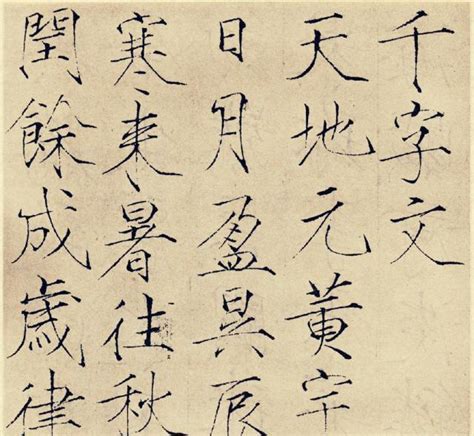 千字文
天地元黄宇
日月盈昃辰
寒来暑往秋
閏餘成歲律